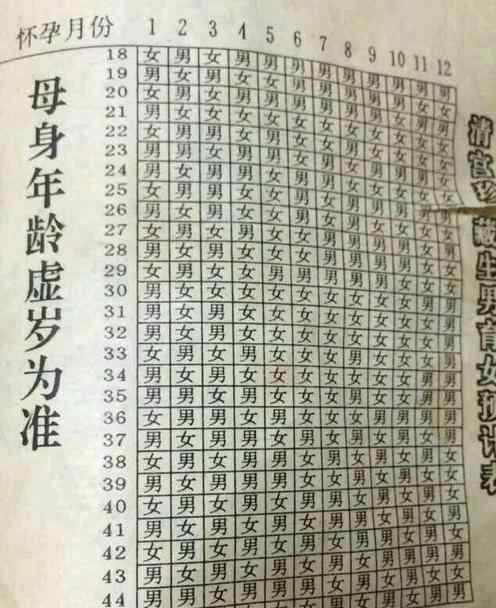 怀孕月份 1 2 3 4 5 6 7 8 9 10 11 12
18 女 男 女 男 男 男 男 男 男 男 男 男
19 男 女 男 女 女 男 男 男 男 男 女 女
20 女 男 女 男 男 男 男 男 男 女 男 男
21 男 女 女 女 女 女 女 女 女 女 女 女
22 女 男 男 女 男 女 女 男 女 女 女 女
23 男 男 女 男 男 女 男 女 男 男 男 女
24 男 女 男 男 女 男 男 女 女 女 女 女
25 女 男 男 女 女 男 女 男 男 男 男 男
26 男 女 男 女 女 男 女 男 女 女 女 女
27 女 男 女 男 女 女 男 男 男 男 女 男
28 男 女 男 女 女 女 男 男 男 男 女 女
29 女 男 女 女 男 男 男 男 男 女 女 女
30 男 女 女 女 女 女 女 女 女 女 男 男
31 男 女 男 女 女 女 女 女 女 女 女 男
32 男 女 男 女 女 女 女 女 女 女 女 男
33 女 男 女 男 女 女 女 男 女 女 女 男
34 男 女 男 女 女 女 女 女 女 女 男 男
35 男 男 女 男 女 女 女 男 女 女 男 男
36 女 男 男 女 男 女 女 女 男 男 男 男
37 男 女 男 男 女 男 女 男 女 男 女 男
38 女 男 女 男 男 女 男 女 男 女 男 女
39 男 女 男 男 男 女 女 男 女 男 女 女
40 女 男 女 男 女 男 男 女 男 女 男 女
41 男 女 男 女 男 女 男 男 女 男 女 男
42 女 男 女 男 女 男 女 男 男 女 男 女
43 男 女 男 女 男 女 男 女 男 男 男 男
44 男 女 男 男 男 女 男 女 男 女 女
母身年龄虚岁为准
清宫藏生男育女预计表